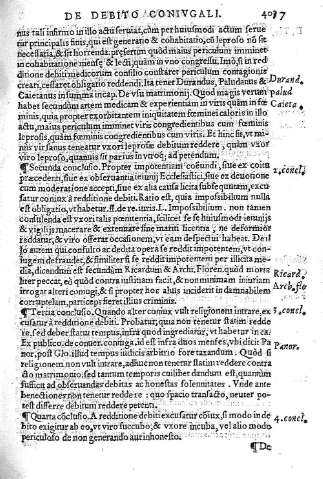 DE DEBITO CONIVGALI. 407
nus tali infirmo in illo actu seruiat, cum per huiusmodi actum serue
tur principalis finis, qui est generatio & cohabitatio, cũ leproso nō sit
necessaria, & sit horrenda. præsertim quòd maius periculum imminet
in cohabitatione
ditione debiti medicorum consilio constaret periculum contagionis
creati, cessaret obligatio reddendi. Ita tenet Durandus, Paludanus &
Caietanus in summa
habet secundùm artem medicam & experientiam in viris quàm in fœ
minis, quia propter exorbitantem iniquitatem
actu, maius periculum imminet viris congredientibus cum fœminis
leprosis, quàm fœminis congredientibus cum viris. Et hinc fit, vt mi-
nùs vir sanus teneatur vxori leprosæ debitum reddere, quàm vxor
viro leproso, quamuis sit parius in vtroq; ad petendum.
¶ Secunda conclusio. Propter impotentiam coëundi, siue ex coitu
præcedenti, siue ex obseruantia ieiunij Ecclesiastici, siue ex deuotione
cum moderatione accepti, siue ex alia causa licita subsequutam, excu
satur coniux à redditione debiti. Ratio est, quia impossibilium nulla
est obligatio, vt habetur. ff. de re. iuris. L. Impossibilium. non tamen
consulenda est vxori talis pœnitentia, scilicet se sic huiusmodi ieiunijs
& vigilijs macerare & extenuare sine mariti licentia, ne deformior
reddatur, & viro offerat occasionem, vt eam despectui habeat. Dein
de autem qui consultò ac dedita opera se reddit impotentem, vt con-
iugem defraudet, & similiter si se reddit impotentem per illicita me-
dia, dicendum est secundùm Ricardum & Archi. Floren. quòd morta
liter peccat, eò quòd contra iustitiam facit, & non minimam iniuriam
irrogat alteri coniugi, & si propter hoc alius inciderit in damnabilem
corruptelam, particeps fieret illius criminis.
¶ Tertia conclusio. Quando alter coniux vult religionem intrare, ex
cusatur à redditione debiti. Probatur, quia non tenetur statim redde
re, sed debet statui tempus, infra quod ingrediatur, vt habetur in ca.
Ex publico. de conuer. coniuga. id est infra duos menses, vbi dicit Pa
nor. post Glo. illud tempus iudicis arbitrio fore taxandum. Quòd si
religionem non vult intrare, adhuc non tenetur statim reddere contra
cto matrimonio, sed tantum temporis cultibet dandum est, quantum
sufficit ad obseruandas debitas ac honestas solennitates. Vnde ante
benedictiones non tenetur reddere: quo spatio transacto, neuter po-
test differre debitum reddere petenti.
¶ Quarta cōclusio. A redditione debiti excusatur cōiux, si modo in de
bito exigitur ab eo, vt viro succubo, & vxore incuba, vel alio modo
periculoso de non generando aut inhonesto.
¶ De
Durand.
palud
Caieta.
2. concl.
Ricard.
Arch. flo
3. concl.
Panor.
4. concl.